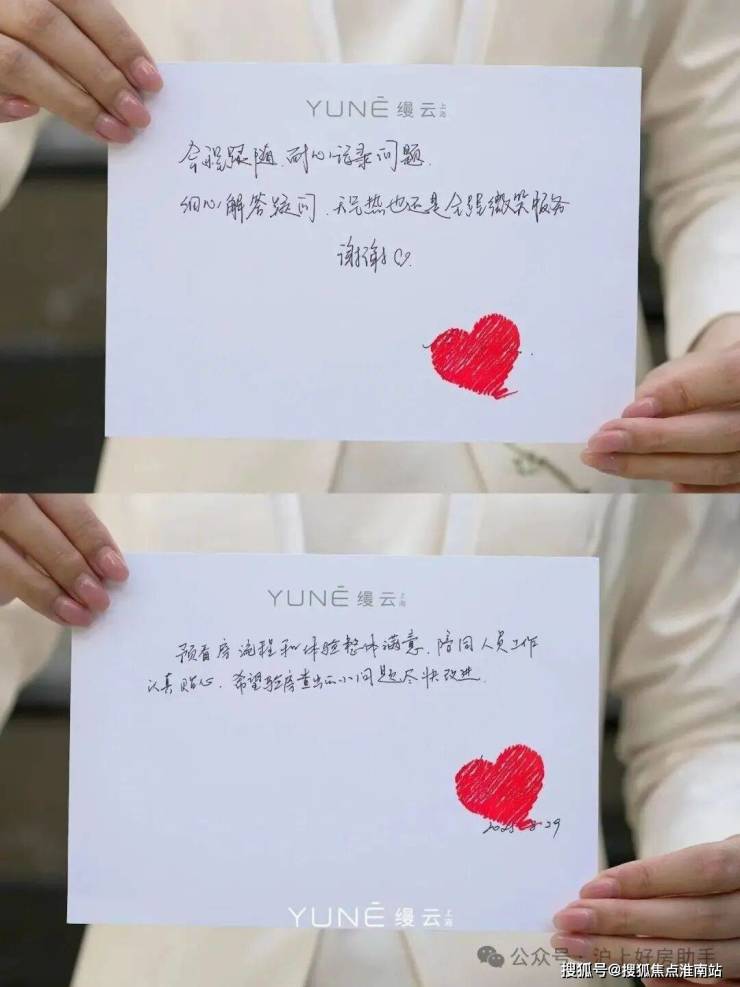 YUNĒ 缦云 上海
全程跟随.耐心记录问题.
细心解答疑问.天气热也还是全程微笑服务
谢谢♡.
YUNĒ 缦云 上海
预看房流程和体验整体满意.陪同人员工作
认真贴心.希望验房查出的小问题尽快改进.
2025-8-29
YUNĒ 缦云 上海
公众号·沪上好房助手
搜狐号@搜狐焦点淮南站